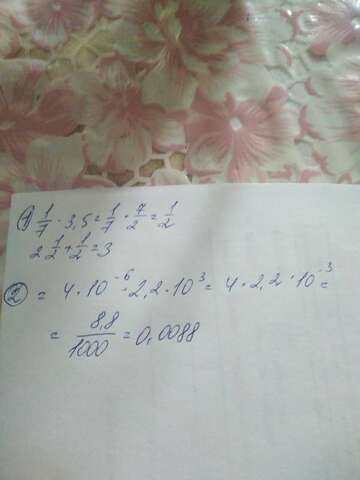 1) 1/7 · 3,5 = 1/7 · 7/2 = 1/2
2 1/2 + 1/2 = 3
2) = 4 · 10⁻⁶ · 2,2 · 10³ = 4 · 2,2 · 10⁻³ =
= 8,8/1000 = 0,0088